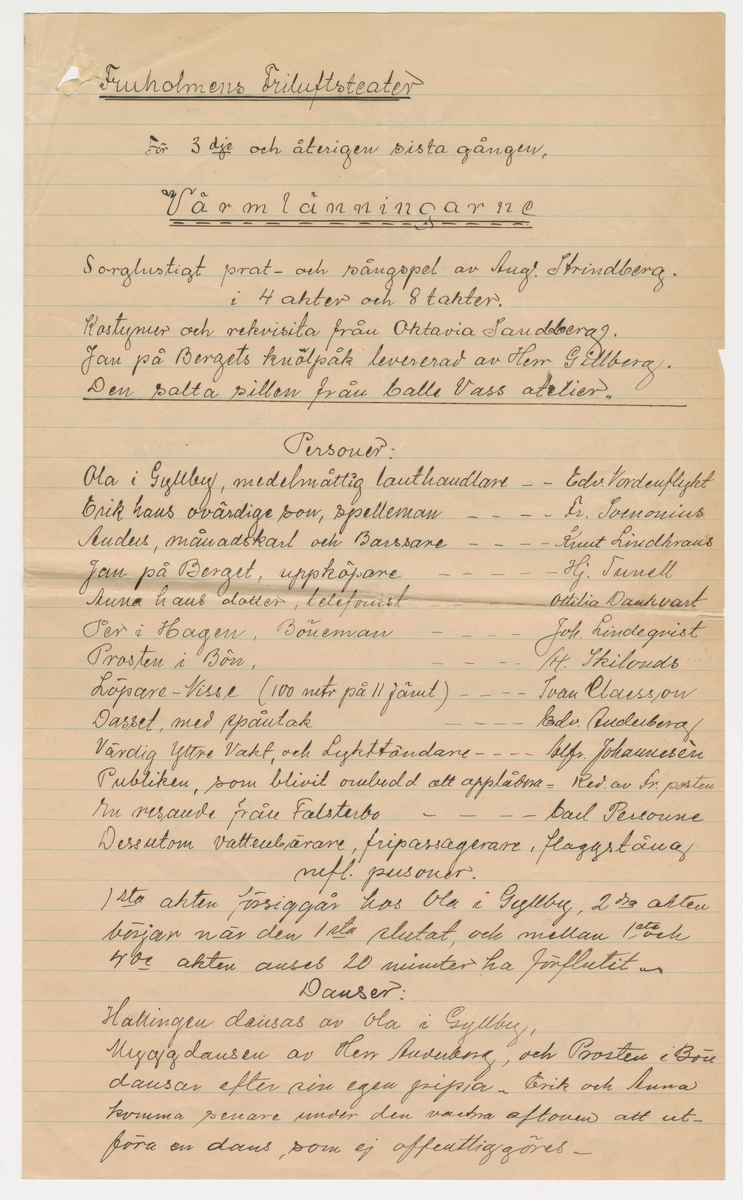 Fruholmens Friluftsteater
För 3dje och återigen sista gången,
Värmlänningarne
Sorglustigt prat- och sångspel av Aug. Strindberg.
i 4 akter och 8 takter.
Kostymer och rekvisita från Oktavia Sandberg.
Jan på Bergets knölpåk levererad av Herr Gillberg.
Den salta sillen från Calle Vass atelier.
Personer:
Ola i Gyllby, medelmåttig lanthandlare - - Edv. Nordenflykt
Erik hans ovärdige son, spelleman - - - - Fr. Svenonius
Anders, månadskarl och Barssare - - - - Knut Lindkrans
Jan på Berget, uppköpare - - - - Hj. Tunell
Anna hans dotter, telefonist - - - Ottilia Dankvart
Per i Hagen, Böneman - - - - Joh. Lindeqvist
Prosten i Bön, - - - - H. Skilonds
Löpare-Nisse (100 mtr på 11 jämt) - - - - Ivan Claesson
Dasset, med spåntak - - - - Edv. Anderberg
Värdig Yttre Vakt, och Lykttändare - - - - Alfr. Johannesén
Publiken, som blivit ombedd att applådera = Red. av Fr. posten
En resande från Falsterbo - - - - Carl Personne
Dessutom vattenbärare, fripassagerare, flaggstång
m.fl. personer.
1sta akten försiggår hos Ola i Gyllby, 2dra akten
börjar när den 1sta slutat, och mellan 1sta och
4de akten anses 20 minuter ha förflutit.
Danser:
Hallingen dansas av Ola i Gyllby,
Myggdansen av Herr Anderberg, och Prosten i Bön
dansar efter sin egen pipa - Erik och Anna
komma senare under den vackra aftonen att ut-
föra en dans, som ej offentliggöres -